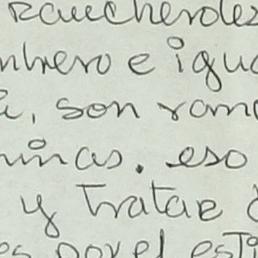 rancheroles
nhero e igua
son ramo
minas. eso
y tratar
es por el esti